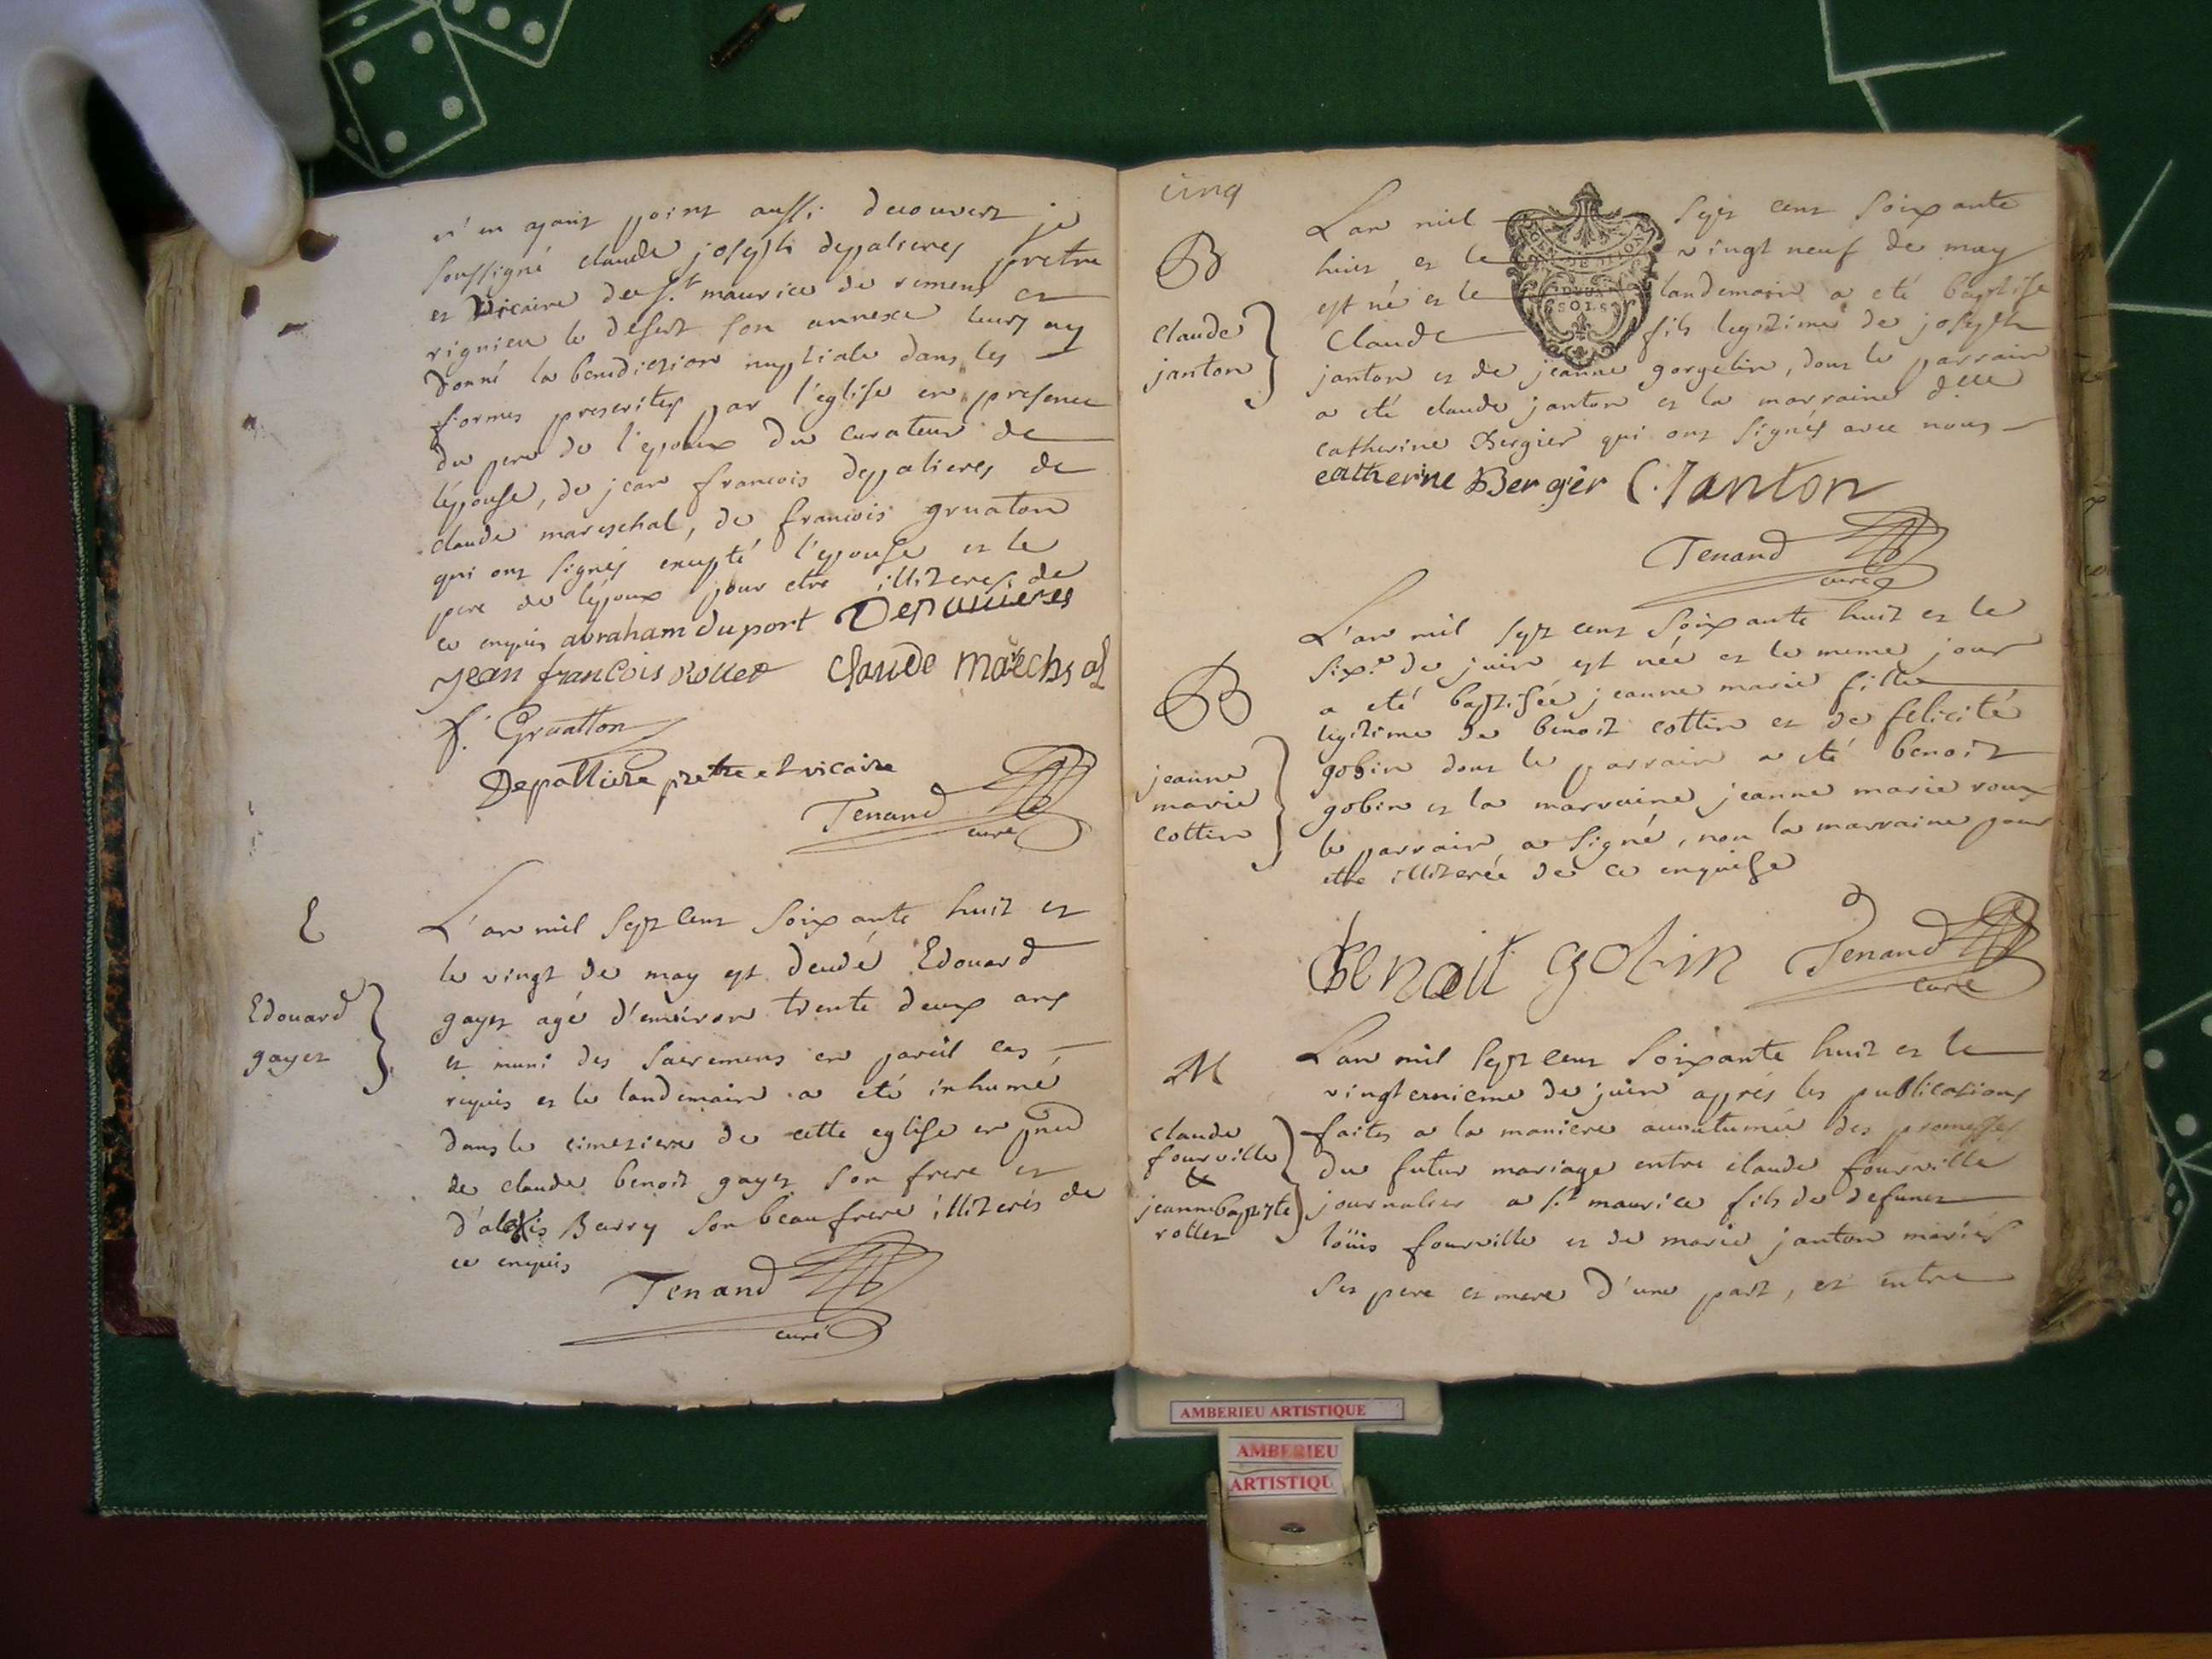 n'en ayant point aussi decouvert je
soussigné claude joseph depalieres pretre
et vicaire de s.t maurice de remens et
rignieu le desert son annexe leurs ay
donné la benediction nuptiale dans les
formes prescrites par l'eglise en presence
du pere de l'epoux du curateur de
l'epouse, de jean francois depalieres de
claude mareschal, de francois gruaton
qui ont signés excepté l'epouse et le
pere de l'epoux pour etre illiterés de
ce enquis abraham duport Depallieres
jean francois Rollet Claude Marechsal
f. Gruatton
Depalliere pretre et vicaire
Tenand
curé
E
Edouard
gayet
L'an mil sept cent soixante huit et
le vingt de may est decedé Edouard
gayet agé d'environ trente deux ans
et muni des sacremens en pareil cas
requis et le landemain a eté inhumé
dans le cimetiere de cette eglise en pnce
de claude benoit gayet son frere et
d'alexis Barry son beaufrere illiterés de
ce enquis
Tenand
curé
cinq
B
claude
janton
L'an mil sept cent soixante
huit et le vingt neuf de may
est né et le landemain a eté baptisé
Claude fils legitime de joseph
janton et de jeanne gorgelin, dont le parrain
a eté claude janton et la marraine d.lle
catherine Bergier qui ont signés avec nous
DEUX
SOLS
catherine Berger C. Janton
Tenand
curé
B
jeanne
marie
cottin
L'an mil sept cent soixante huit et le
six.e de juin est née et le meme jour
a eté baptisée jeanne marie fille
legitime de benoit cottin et de felicité
gobin dont le parrain a eté benoit
gobin et la marraine jeanne marie roux
le parrain a signé, non la marraine pour
etre illiterée de ce enquise
benoit gobin Tenand
curé
M
claude
fourville
&
jeannebaptiste
rollet
L'an mil sept cent soixante huit et le
vingt unieme de juin après les publications
faites a la maniere accoutumée des promesses
du futur mariage entre claude fourville
journalier a s.t maurice fils de defunct
loüis fourville et de marie janton mariés
ses pere et mere d'une part, et entre
AMBERIEU ARTISTIQUE
AMBERIEU
ARTISTIQU